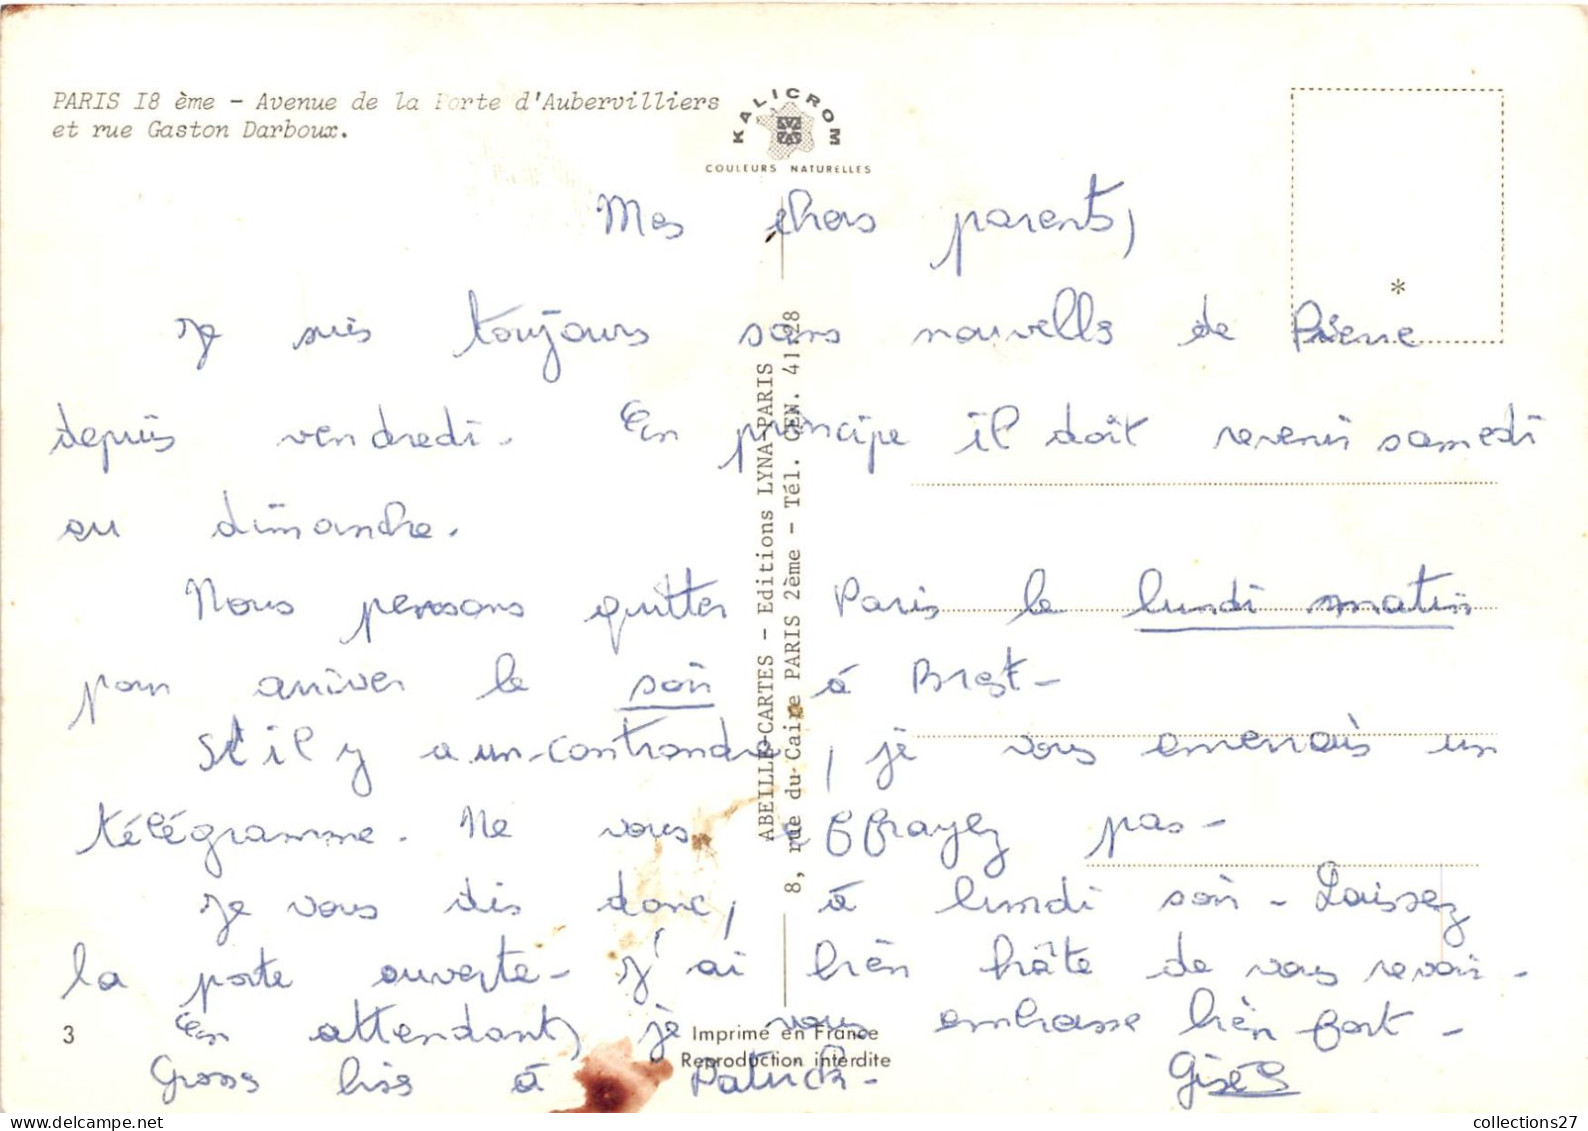 PARIS I8 ème - Avenue de la Porte d'Aubervilliers
et rue Gaston Darboux.
KALICROM
COULEURS NATURELLES
*
Mes chers parents,
Je suis toujours sans nouvelles de Pierre
depuis vendredi. En principe il doit revenir samedi
ou dimanche.
Nous pensons quitter Paris le lundi matin
pour arriver le soir à Brest-
S'il y a un contrordre, je vous enverrais un
télégramme. Ne vous effrayez pas-
Je vous dis donc, à lundi soir- Laissez
la porte ouverte- J'ai bien hâte de vous revoir-
En attendant, je vous embrasse bien fort-
Gross biss à Patrick- Gisèle
ABEILLE-CARTES - Editions LYNA-PARIS
8, rue du Caire PARIS 2ème - Tél. CEN. 41-28
3
Imprimé en France
Reproduction interdite
collections27